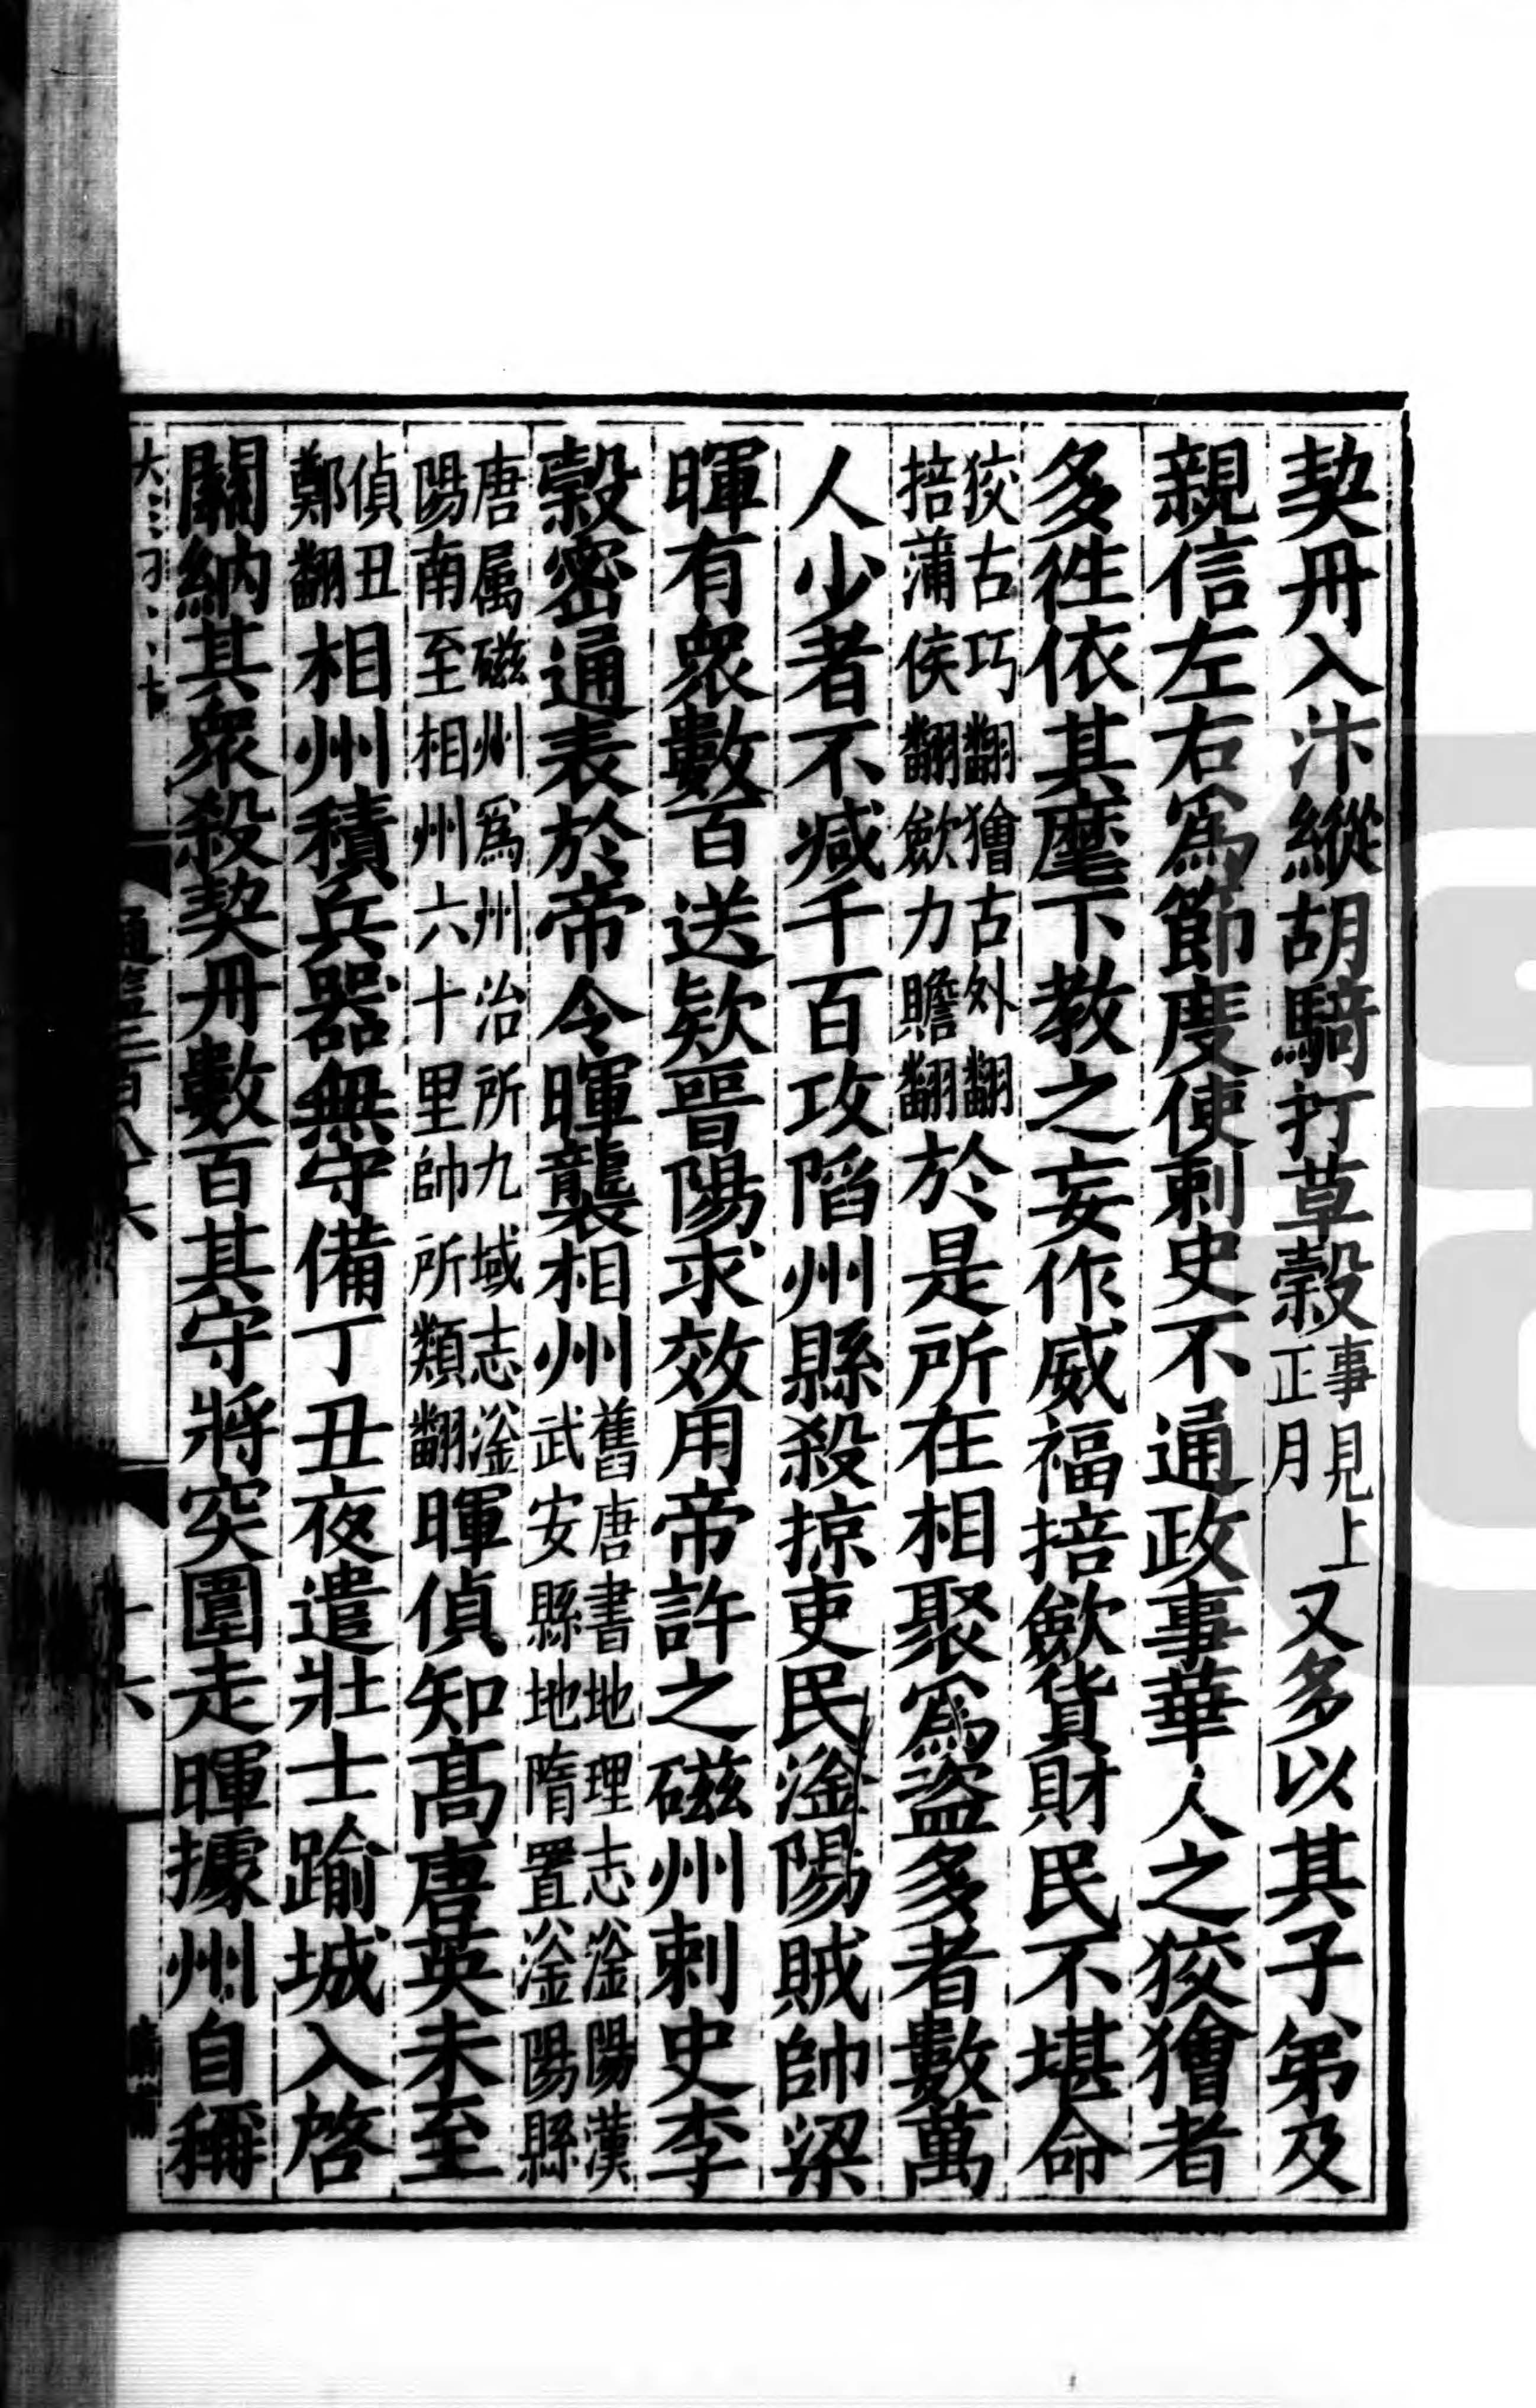 契丹入汴縱胡騎打草穀事見上正月又多以其子弟及
親信左右爲節度使刺史不通政事華人之狡獪者
多往依其麾下教之妄作威福掊歛貨財民不堪命
狡古巧翻獪古外翻掊蒲侯翻歛力贍翻於是所在相聚爲盜多者數萬
人少者不减千百攻陷州縣殺掠吏民滏陽賊帥梁
暉有衆數百送欵晉陽求效用帝許之磁州刺史李
穀密通表於帝令暉襲相州舊唐書地理志滏陽漢武安縣地隋置滏陽縣
唐属磁州爲州治所九域志滏陽南至相州六十里帥所類翻暉偵知高唐英未至
偵丑鄭翻相州積兵器無守備丁丑夜遣壯士踰城入啓
關納其衆殺契丹數百其守將突圍走暉據州自稱
通鑑二百八十六
十六